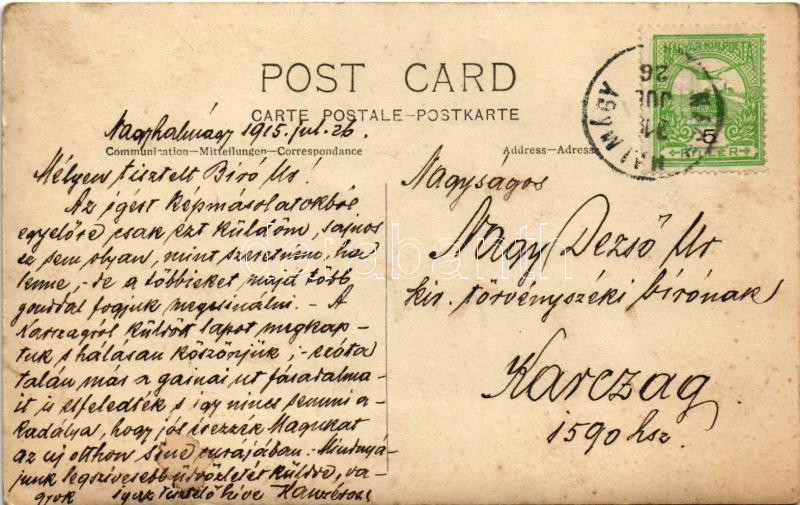 POST CARD
CARTE POSTALE–POSTKARTE
Nagyhalmágy 1915. jul. 26.
Communication–Mitteilungen–Correspondance
Address–Adresse
MAGYAR KIR. POSTA
5
FILLÉR
NALMÁGY
JUL
26
Mélyen tisztelt Bíró Úr!
Az igért képmásolatokból
egyelőre csak ezt küldöm, sajnos
ez sem olyan, mint szeretném, ha
lenne, - de a többieket majd több
gonddal fogjuk megcsinálni. - A
Karczagról küldött lapot megkap-
tuk s hálásan köszönjük; - azóta
talán már a gainai út fáradalma-
it is elfeledték s így nincs semmi a-
kadálya, hogy jól érezzék Magukat
az új otthon
legszívesebb üdvözletét küldve, va-
gyok igaz tisztelő híve
Nagyságos
Nagy Dezső Úr
kir. törvényszéki bírónak
Karczag
1590 hsz.
darabanth